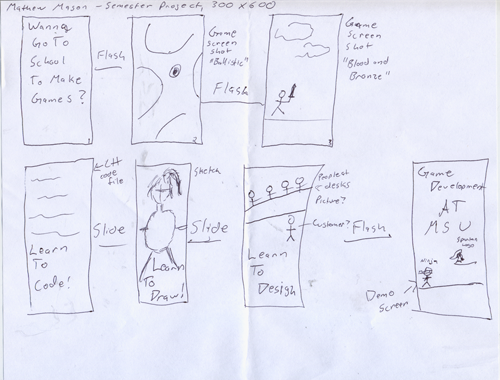 Mathew Mason - Semester Project, 300 x 600
Wanna
Go To
School
To Make
Games?
1
Flash
2
Game
Screen
Shot
"Ballistic"
Flash
3
Game
Screen
Shot
"Blood and
Bronze"
C++
code
file
Learn
To
Code!
Slide
Sketch
Learn
To
Draw!
Slide
People at
desks
Picture?
Customer?
Learn
To
Design
Flash
Game
Development
AT
MSU
Spartan
Logo
Ninja
Demo
Screen